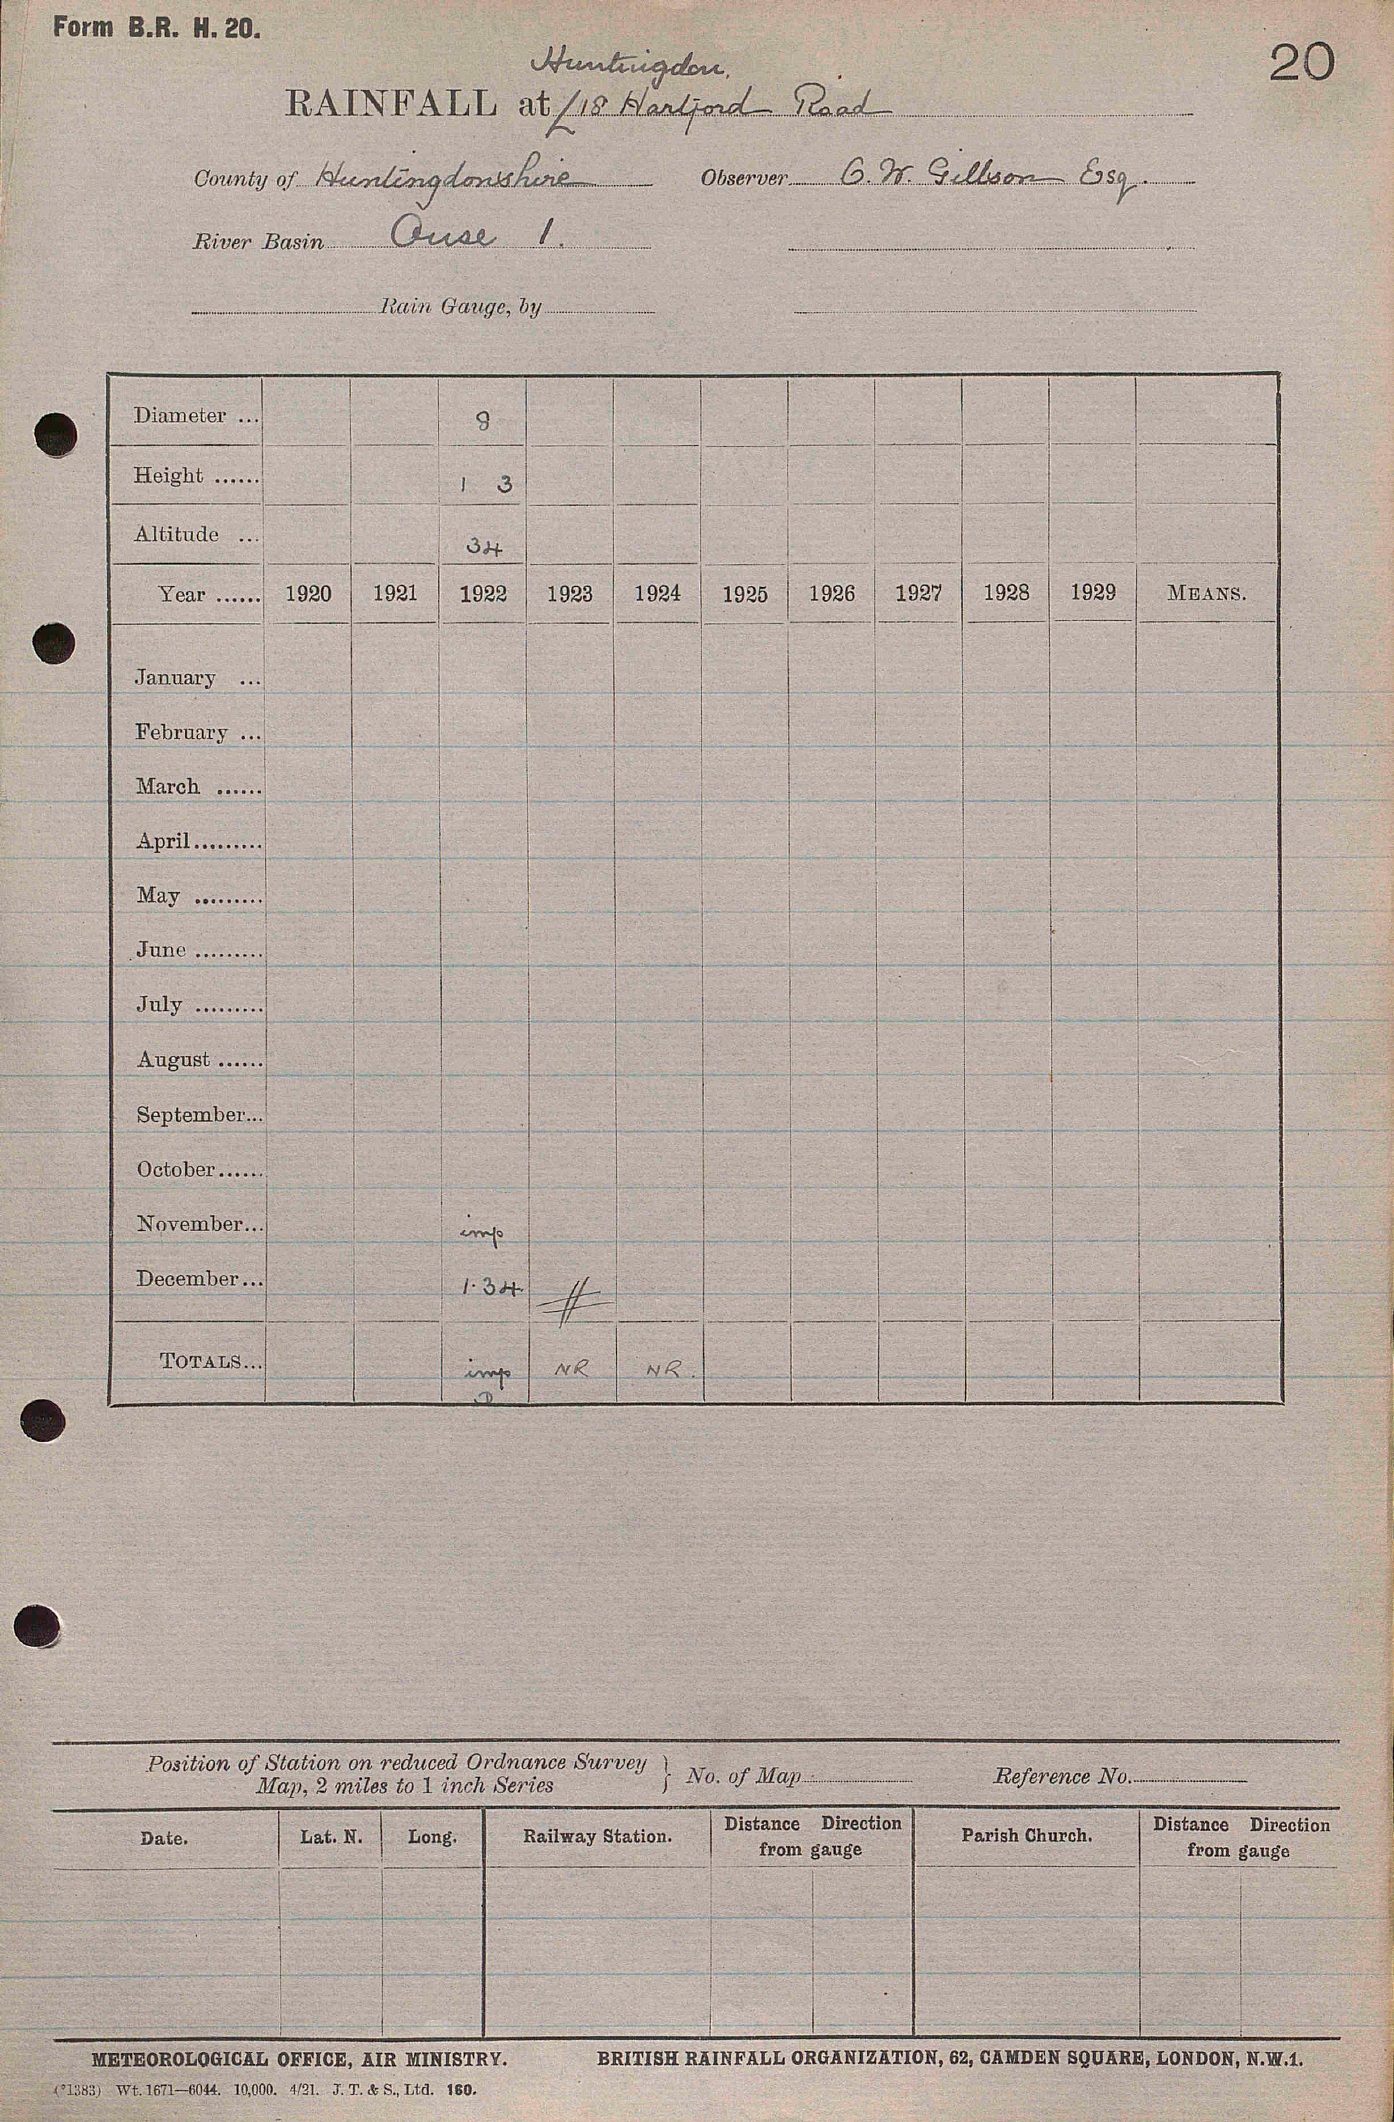 Form B.R. H. 20.
20
Huntingdon.
RAINFALL at 18 Hartford Road
County of Huntingdonshire Observer G. W. Gillson Esq.
River Basin Ouse 1.
Rain Gauge, by
Diameter ... 8
Height ...... 1 3
Altitude ... 34
Year ...... 1920 1921 1922 1923 1924 1925 1926 1927 1928 1929 MEANS.
January ...
February ...
March ......
April.........
May .........
June .........
July .........
August ......
September...
October......
November... imp
December... 1.34
TOTALS... imp NR NR.
Position of Station on reduced Ordnance Survey
Map, 2 miles to 1 inch Series } No. of Map Reference No.
Date. Lat. N. Long. Railway Station. Distance Direction Parish Church. Distance Direction
from gauge from gauge
METEOROLOGICAL OFFICE, AIR MINISTRY. BRITISH RAINFALL ORGANIZATION, 62, CAMDEN SQUARE, LONDON, N.W.1.
(*1383) Wt. 1671—6044. 10,000. 4/21. J. T. & S., Ltd. 160.